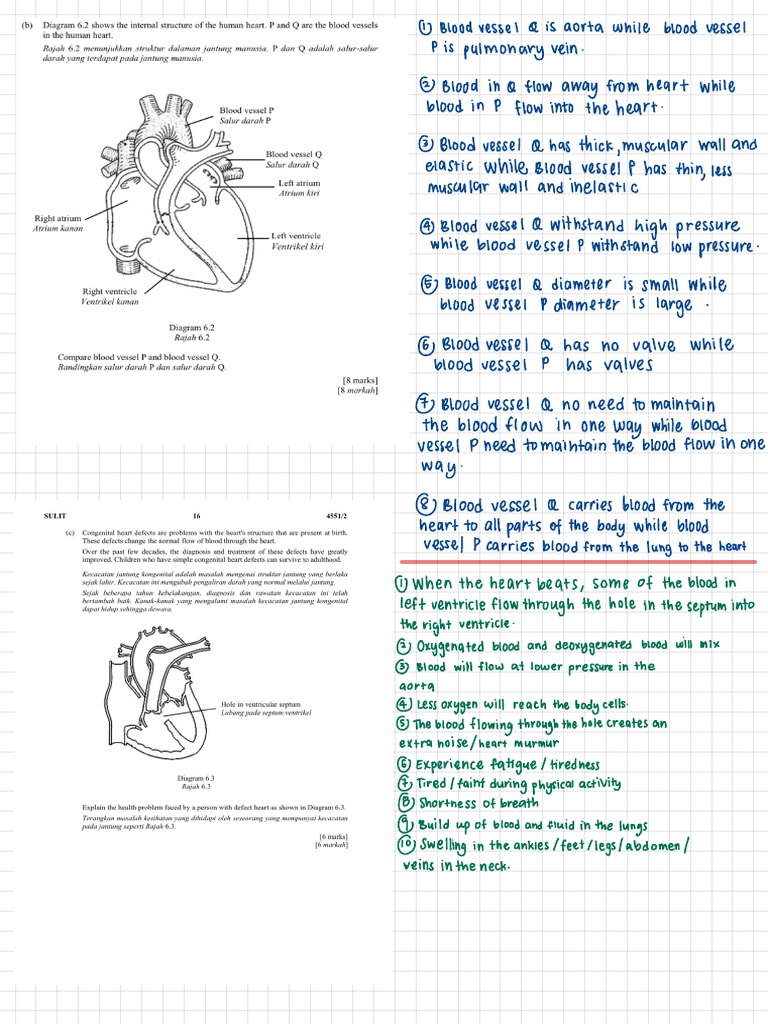 (b) Diagram 6.2 shows the internal structure of the human heart. P and Q are the blood vessels
in the human heart.
Rajah 6.2 menunjukkan struktur dalaman jantung manusia. P dan Q adalah salur-salur
darah yang terdapat pada jantung manusia.
Blood vessel P
Salur darah P
Blood vessel Q
Salur darah Q
Left atrium
Atrium kiri
Right atrium
Atrium kanan
Left ventricle
Ventrikel kiri
Right ventricle
Ventrikel kanan
Diagram 6.2
Rajah 6.2
Compare blood vessel P and blood vessel Q.
Bandingkan salur darah P dan salur darah Q.
[8 marks]
[8 markah]
① Blood vessel Q is aorta while blood vessel
P is pulmonary vein.
② Blood in Q flow away from heart while
blood in P flow into the heart.
③ Blood vessel Q has thick, muscular wall and
elastic while blood vessel P has thin, less
muscular wall and inelastic
④ Blood vessel Q withstand high pressure
while blood vessel P withstand low pressure.
⑤ Blood vessel Q diameter is small while
blood vessel P diameter is large.
⑥ Blood vessel Q has no valve while
blood vessel P has valves
⑦ Blood vessel Q no need to maintain
the blood flow in one way while blood
vessel P need to maintain the blood flow in one
way.
⑧ Blood vessel Q carries blood from the
heart to all parts of the body while blood
vessel P carries blood from the lung to the heart
SULIT 16 4551/2
(c) Congenital heart defects are problems with the heart's structure that are present at birth.
These defects change the normal flow of blood through the heart.
Over the past few decades, the diagnosis and treatment of these defects have greatly
improved. Children who have simple congenital heart defects can survive to adulthood.
Kecacatan jantung kongenital adalah masalah mengenai struktur jantung yang berlaku
sejak lahir. Kecacatan ini mengubah pengaliran darah yang normal melalui jantung.
Sejak beberapa tahun kebelakangan, diagnosis dan rawatan kecacatan ini telah
bertambah baik. Kanak-kanak yang mengalami masalah kecacatan jantung kongenital
dapat hidup sehingga dewasa.
Hole in ventricular septum
Lubang pada septum ventrikel
Diagram 6.3
Rajah 6.3
Explain the health problem faced by a person with defect heart as shown in Diagram 6.3.
Terangkan masalah kesihatan yang dihidapi oleh seseorang yang mempunyai kecacatan
pada jantung seperti Rajah 6.3.
[6 marks]
[6 markah]
① When the heart beats, some of the blood in
left ventricle flow through the hole in the septum into
the right ventricle.
② Oxygenated blood and deoxygenated blood will mix
③ Blood will flow at lower pressure in the
aorta
④ Less oxygen will reach the body cells.
⑤ The blood flowing through the hole creates an
extra noise/heart murmur
⑥ Experience fatigue / tiredness
⑦ Tired / faint during physical activity
⑧ Shortness of breath
⑨ Build up of blood and fluid in the lungs
⑩ Swelling in the ankles / feet / legs / abdomen /
veins in the neck.